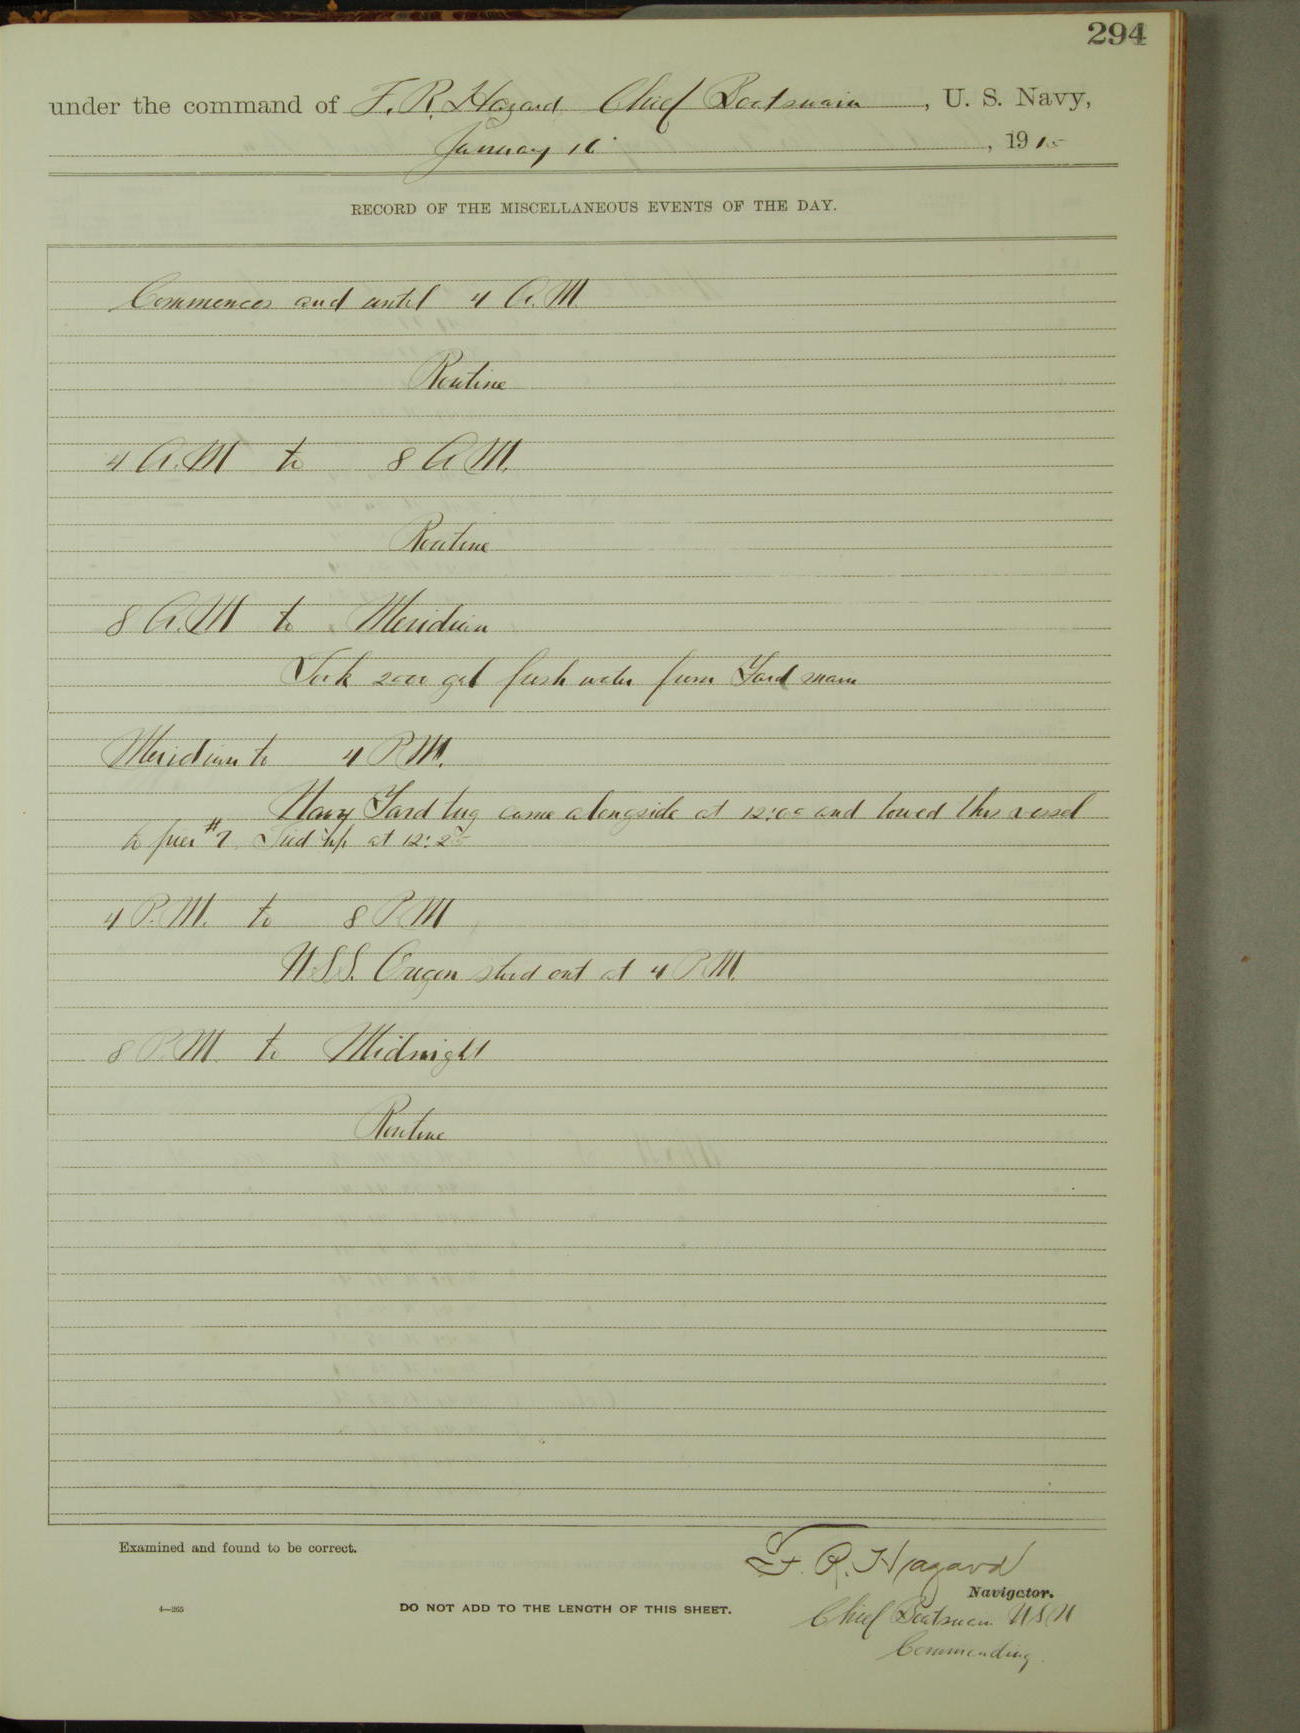 294
under the command of F. R. Hazard Chief Boatswain, U. S. Navy,
January 16, 1915
RECORD OF THE MISCELLANEOUS EVENTS OF THE DAY.
Commences and until 4 A.M.
Routine
4 A.M to 8 A M.
Routine
8 A.M to Meridian
Took 2000 gal fresh water from Yard
Meridian to 4 P M.
Navy Yard tug came alongside at 12:05 and towed this vessel
to pier #7. Tied up at 12:25
4 P.M. to 8 P M
U.S.S. Oregon stood out at 4 P.M.
8 P.M. to Midnight
Routine
Examined and found to be correct.
F. R. Hazard
Navigator.
4—265
DO NOT ADD TO THE LENGTH OF THIS SHEET.
Chief Boatswain U S N
Commanding.